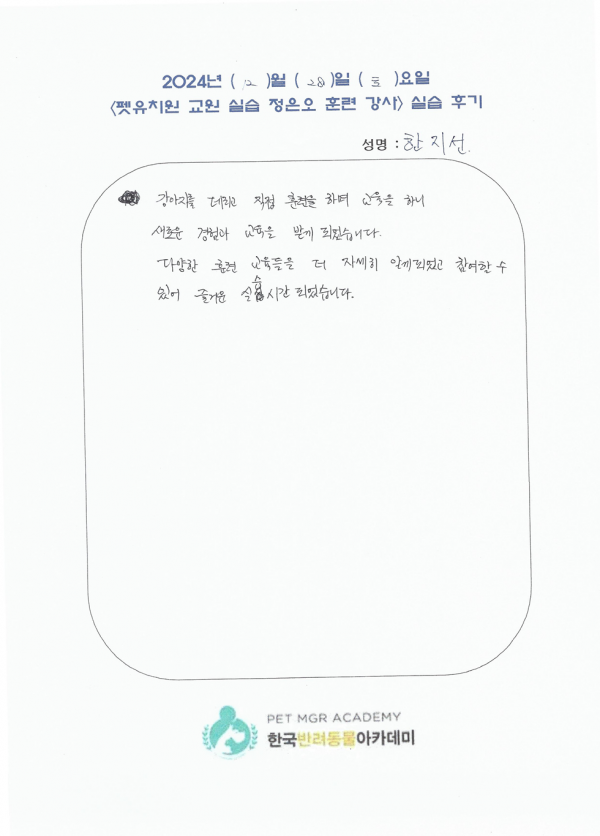 2024년 ( 12 )월 ( 28 )일 ( 토 )요일
<펫유치원 교원 실습 정은오 훈련 강사> 실습 후기
성명 : 한지선
강아지를 데리고 직접 훈련을 하며 교육을 하니
새로운 경험과 교육을 받게 되었습니다.
다양한 훈련 교육들을 더 자세히 알게되었고 참여할 수
있어 즐거운 실습시간 되었습니다.
PET MGR ACADEMY
한국반려동물아카데미